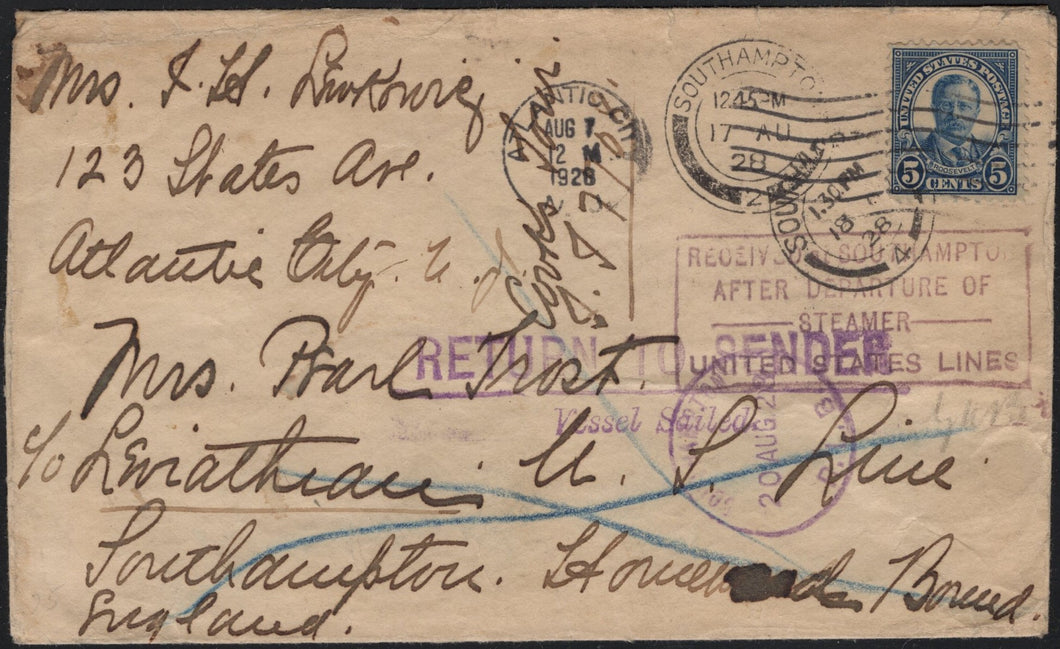 Mrs. J. H.
123 States Ave.
Atlantic City. N. J.
ATLANTIC CITY
AUG 7
12 M
1928
SOUTHAMPTON
12.45 PM
17 AU
28
1.30 PM
18
28
UNITED STATES POSTAGE
ROOSEVELT
5 CENTS 5
RECEIVED SOUTHAMPTON
AFTER DEPARTURE OF
STEAMER
UNITED STATES LINES
RETURN TO SENDER
Vessel Sailed.
20 AUG 28
Mrs. Pearl Trost.
c/o Leviathian U. S. Line.
Southampton. Bound.
England.